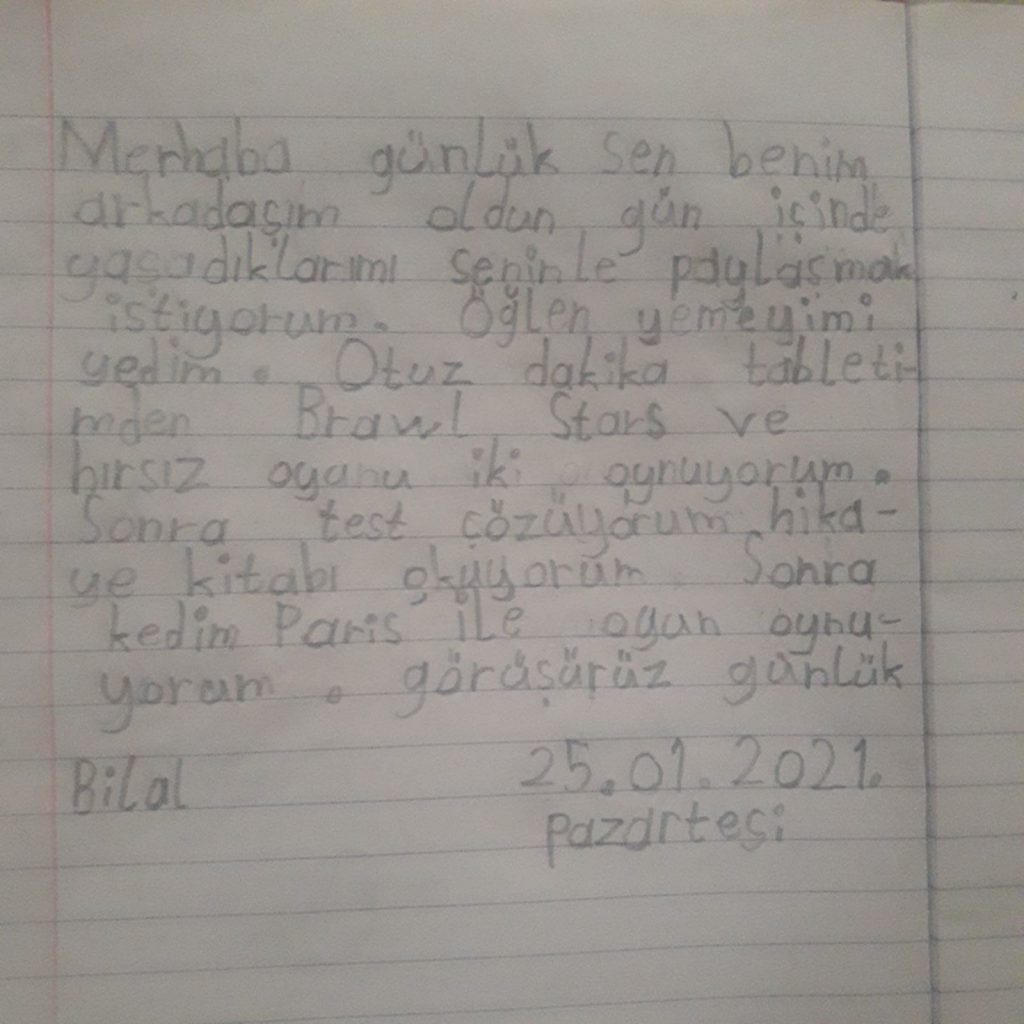 Merhaba günlük sen benim
arkadaşım oldun gün içinde
yaşadıklarımı seninle paylaşmak
istiyorum. Öğlen yemeyimi
yedim. Otuz dakika tableti-
mden Brawl Stars ve
hırsız oyanu iki oynuyorum.
Sonra test çözüyorum hika-
ye kitabı okuyorum Sonra
kedim Paris ile oyun oynu-
yorum. görüşürüz günlük
Bilal 25.01.2021.
pazartesi